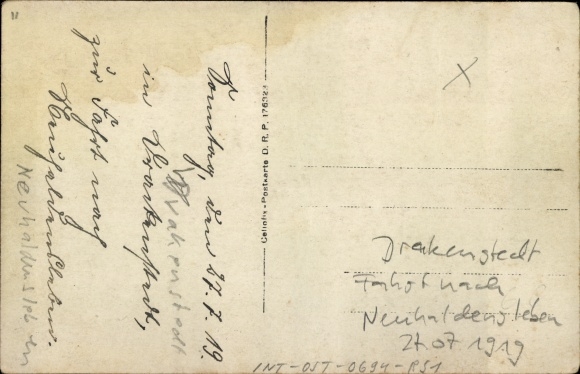 Sonntag, den 27.7.19.
in Drackenstedt,
Drakenstedt
zur Fahrt nach
Neuhaldensleben.
Neuhaldensleben
Cellofix-Postkarte D. R. P. 176323
X
Drakenstedt
Fahrt nach
Neuhaldensleben
27.07 1919
INT-OST-0694-RS1